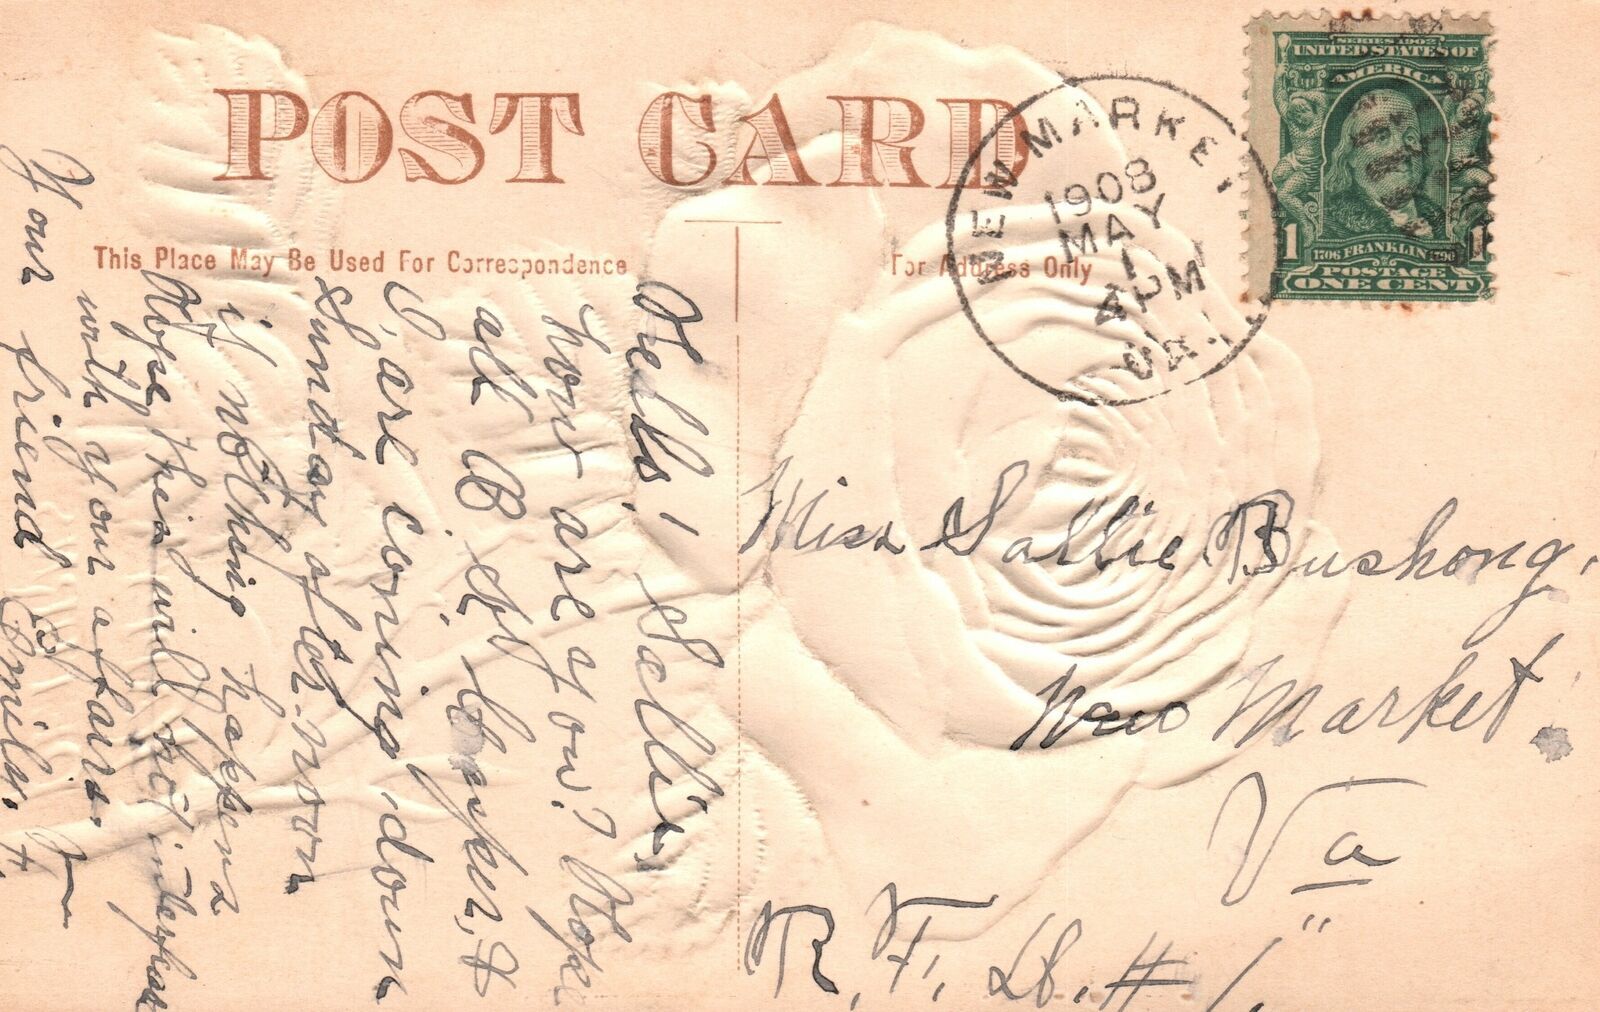 POST CARD
This Place May Be Used For Correspondence
For Address Only
NEW MARKET
1908
MAY
1
4 PM
VA.
SERIES 1902
UNITED STATES OF
AMERICA
1 1
1706 FRANKLIN 1790
POSTAGE
ONE CENT
Miss Sallie Bushong,
New Market.
Va
R. F. D. # 1.
Hello! Sallie,
how are you? Hope
all O.K. &
I, are coming down
Sunday after-noon
if nothing happens
Hope this will not interfear
with your affairs.
Your friend